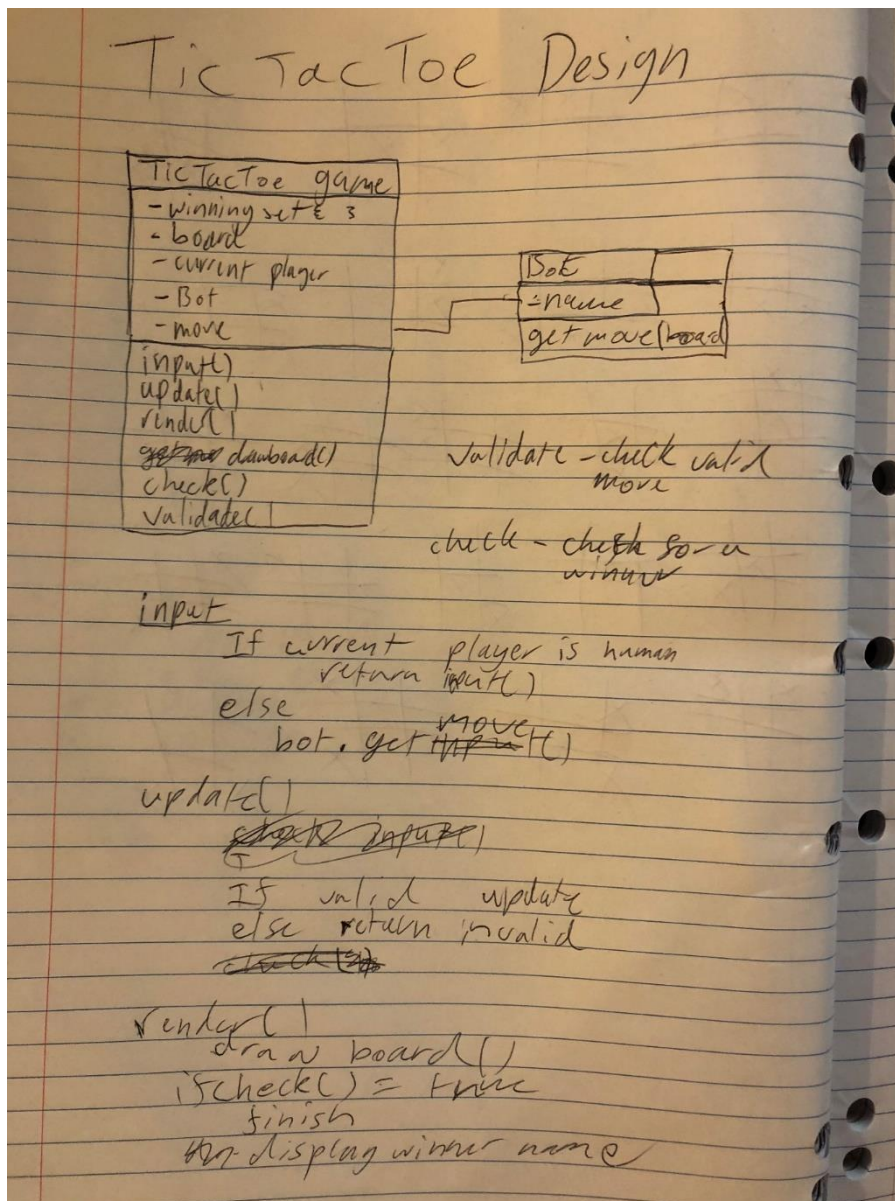 TicTacToe Design
TicTacToe game
- winning set { }
- board
- current player
- Bot
- move
input()
update()
render()
drawboard()
check()
validate()
Bot
- name
get move(board)
validate - check valid
move
check - check for a
winner
input
If current player is human
return input()
else
move
bot. get ()
update()
If valid update
else return invalid
render()
draw board()
if check() = true
finish
display winner name